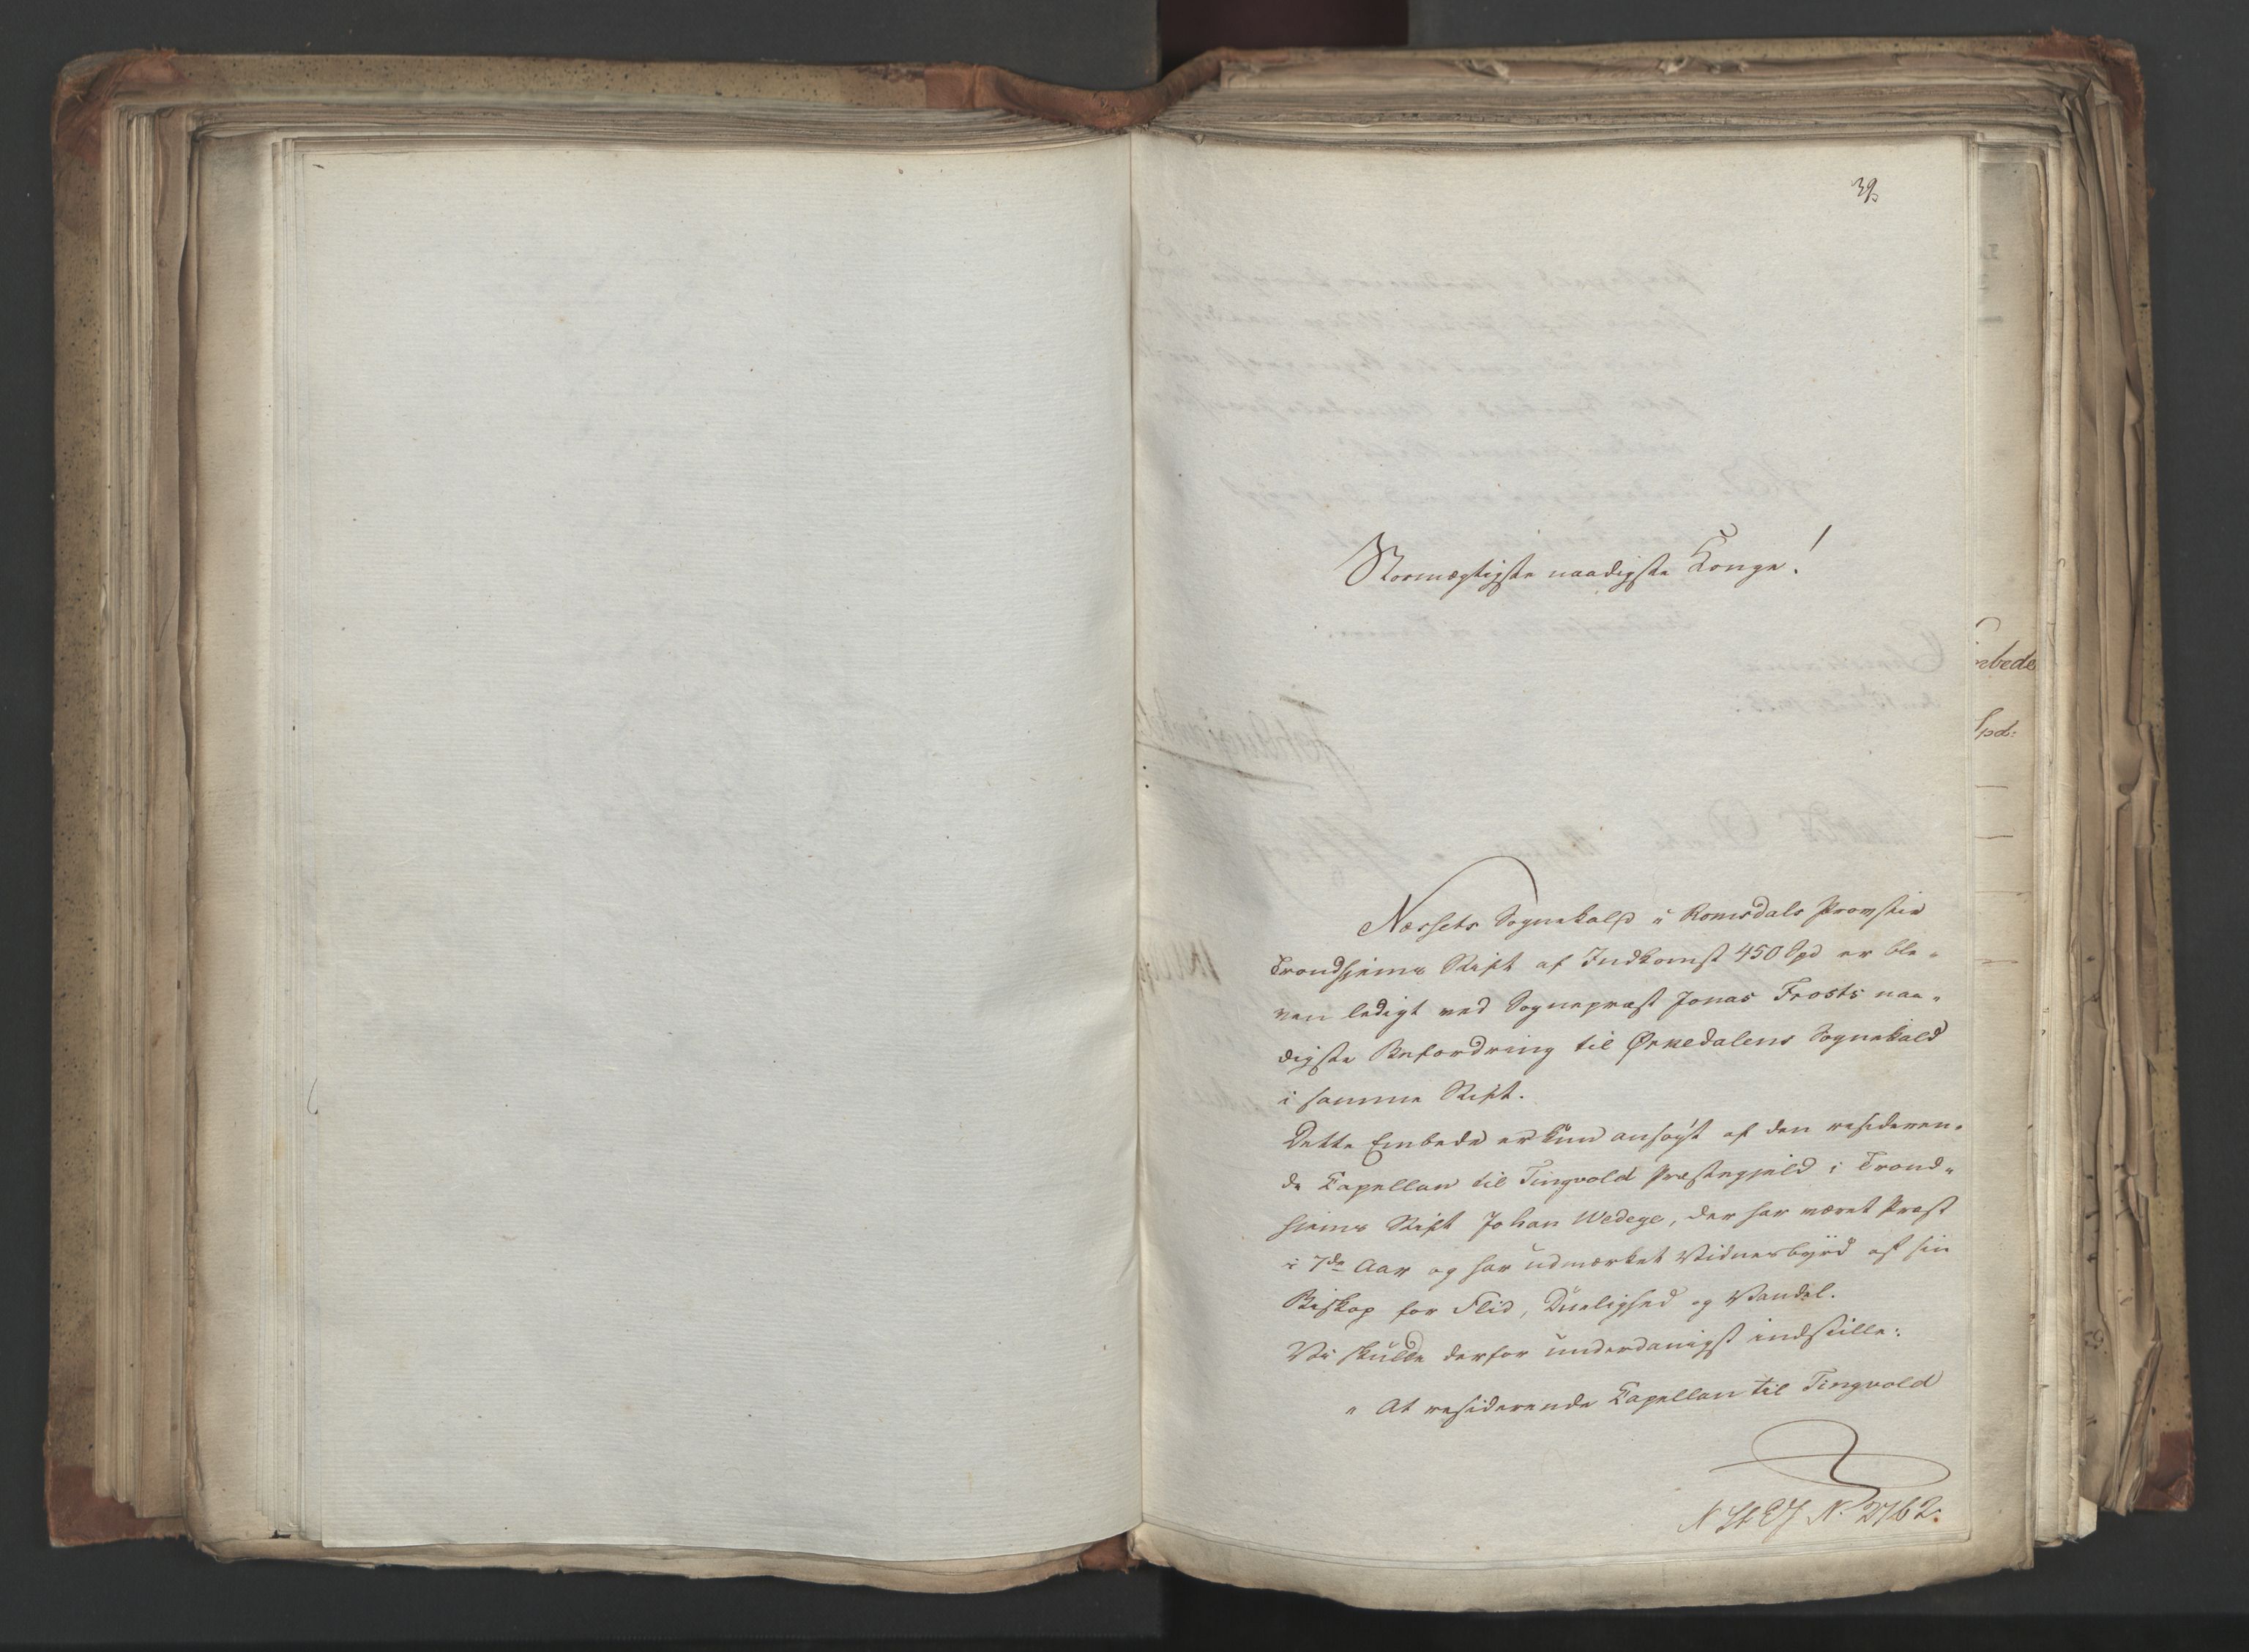 39.
Stormægtigste naadigste Konge!
Næssets Sognekald i Romsdals Provstie
Trondhjems Stift af Indkomst 450 Spd er ble-
ven ledigt ved Sognepræst Jonas Frosts naa-
digste Befordring til Ørkedalens Sognekald
i samme Stift.
Dette Embede er kun ansøgt af den resideren-
de Capellan til Tingvold Præstegjeld i Trond-
hjems Stift Johan Wedege, der har været Præst
i 7de Aar og har udmærket Vidnesbyrd af sin
Biskop for Flid, Duelighed og Vandel.
Vi skulde derfor underdanigst indstille:
" At residerende Capellan til Tingvold
N St EJ N. 2762.
mbede
Spd: